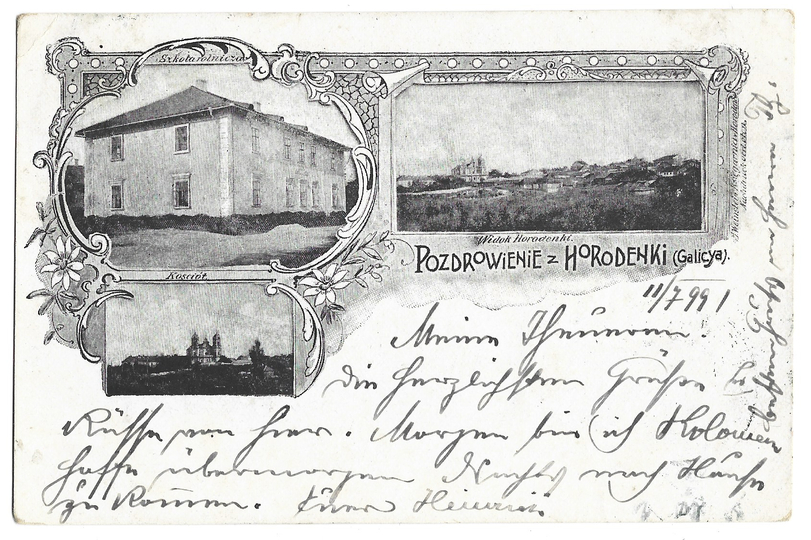 Szkoła rolnicza
Widok Horodenki.
Pozdrowienie z Horodenki (Galicya).
Kościół.
11/7 99
Meine Theueren!
die herzlichsten Grüße &
Küsse von hier. Morgen bin ich Kolomea
hoffe übermorgen Nachts nach Hause
zu kommen. Euer Heinrich.